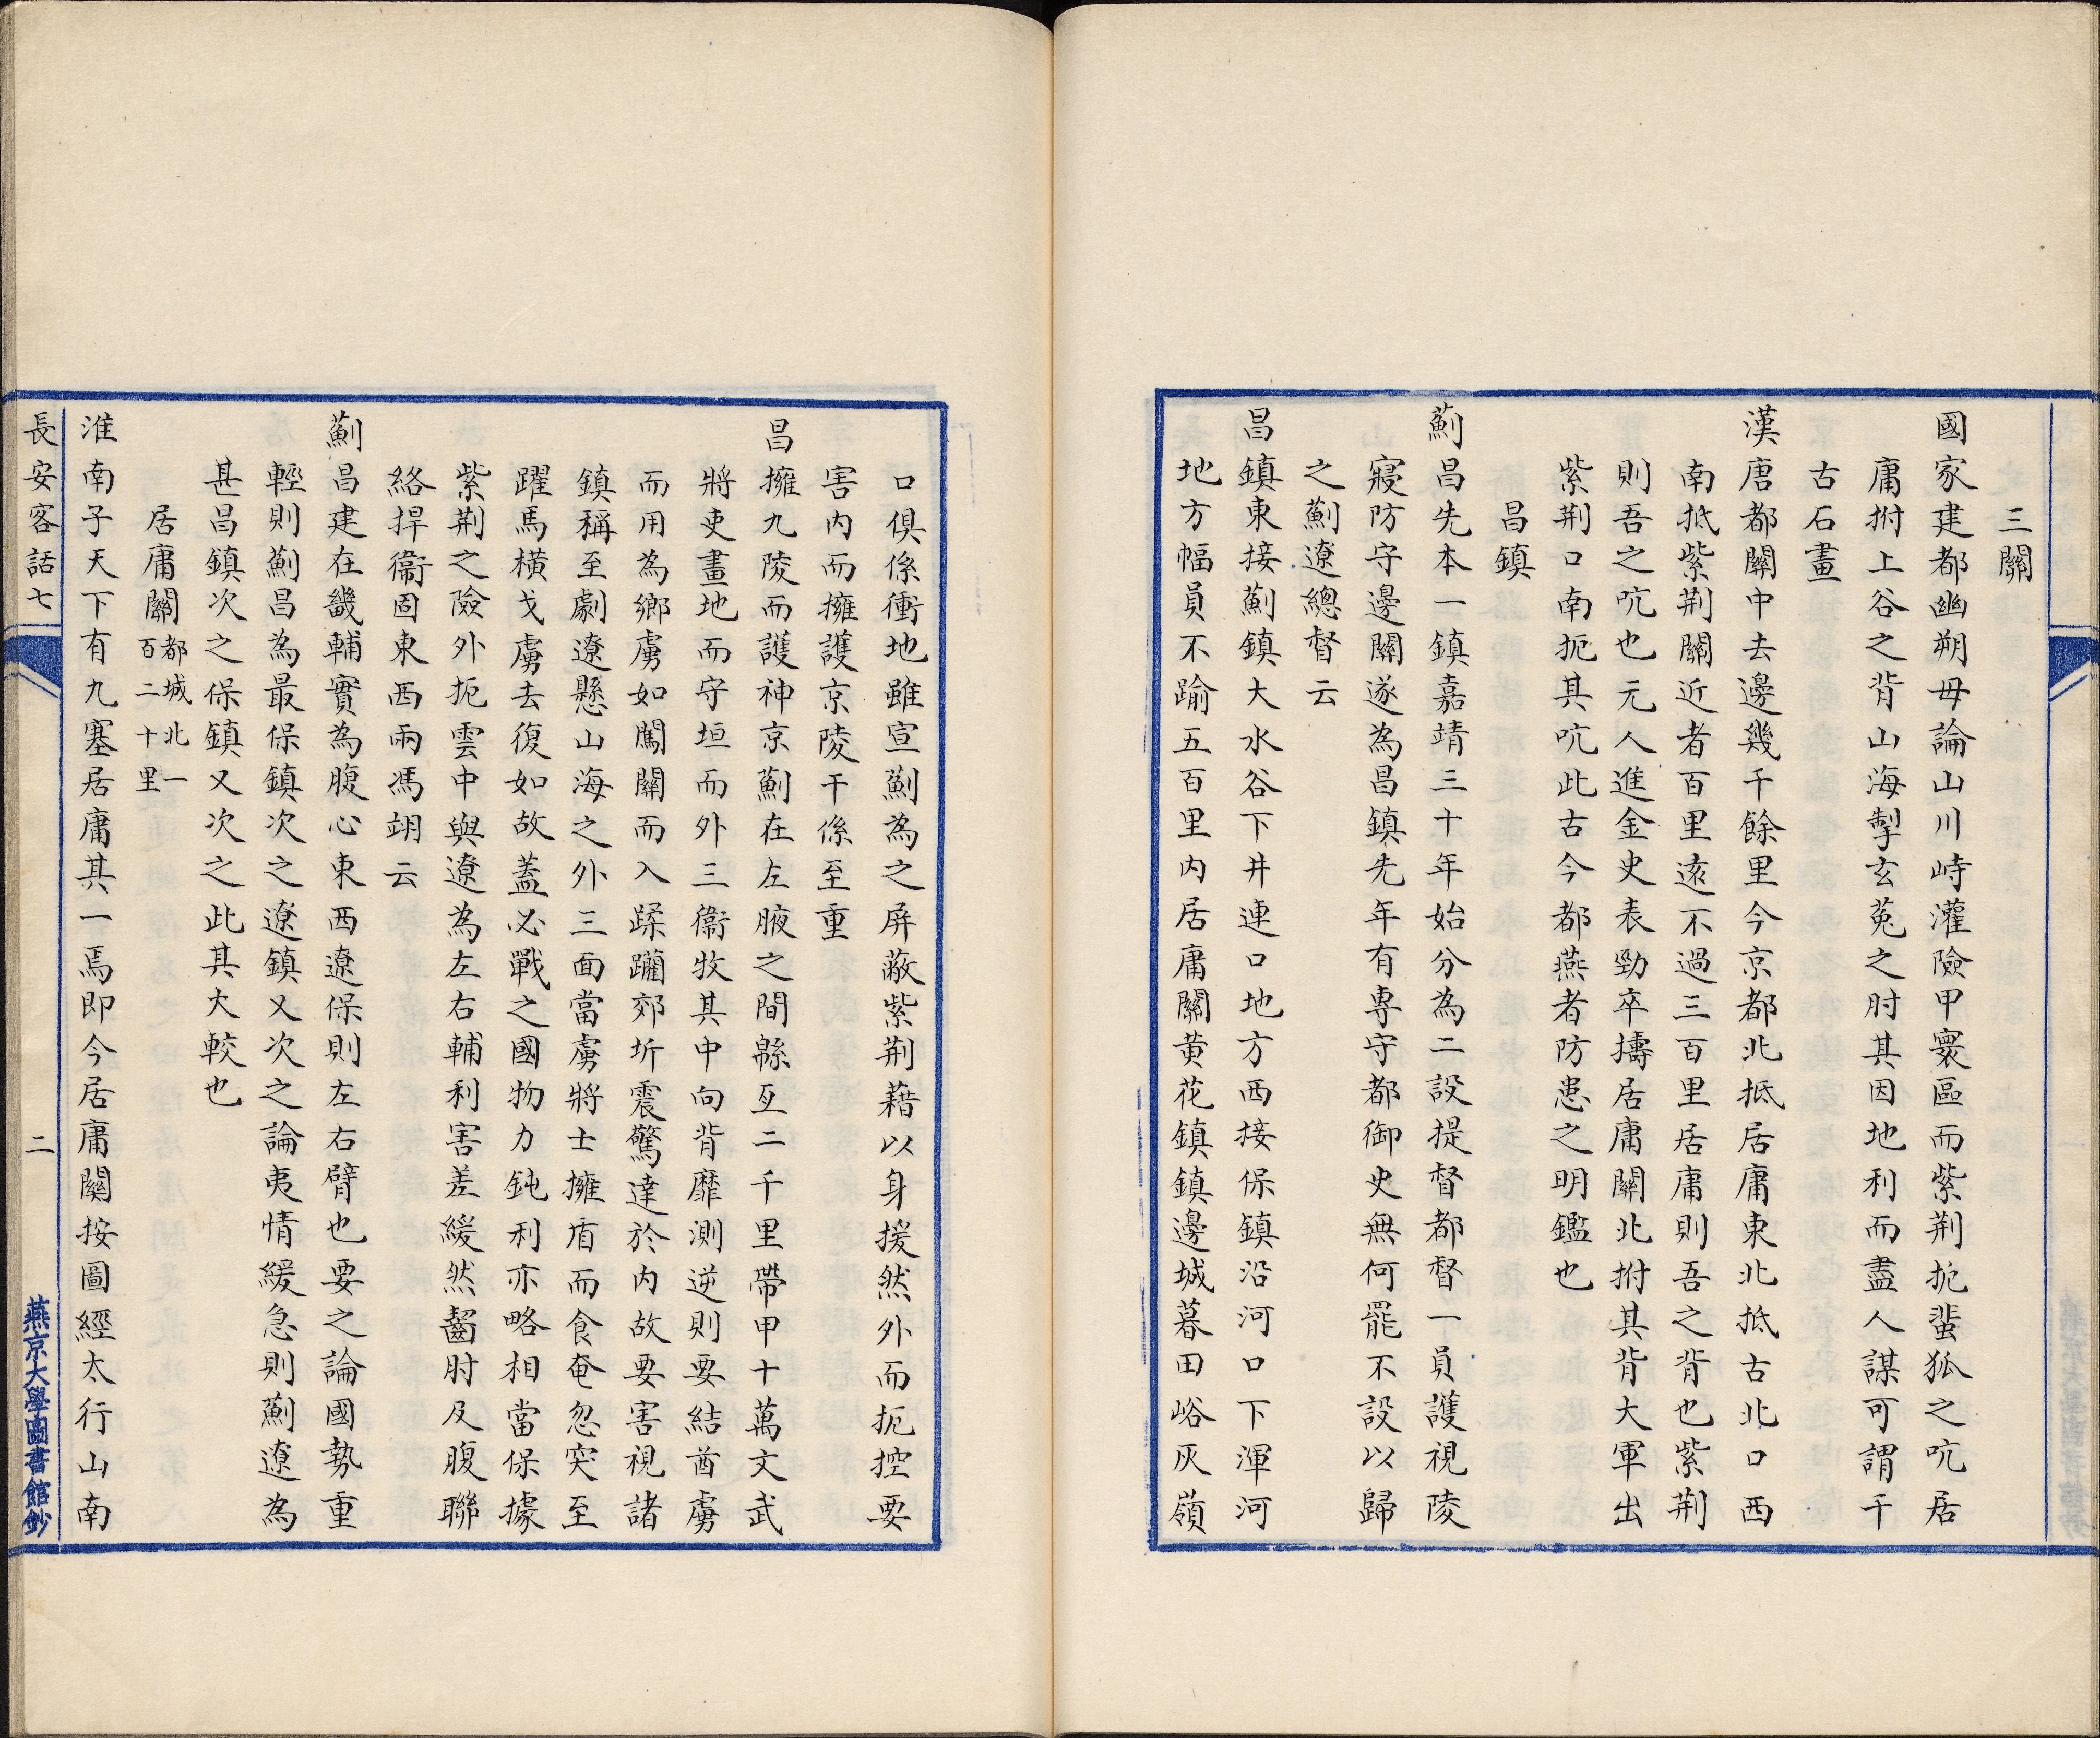 三關
國家建都幽朔毋論山川峙灌險甲寰區而紫荆扼蜚狐之吭居
庸拊上谷之背山海掣玄菟之肘其因地利而盡人謀可謂千
古石畫
漢唐都關中去邊幾千餘里今京都北抵居庸東北抵古北口西
南抵紫荆關近者百里逺不過三百里居庸則吾之背也紫荆
則吾之吭也元人進金史表勁卒擣居庸關北拊其背大軍出
紫荆口南扼其吭此古今都燕者防患之明鑑也
昌鎮
薊昌先本一鎮嘉靖三十年始分為二設提督都督一員護視陵
寢防守邊關遂為昌鎮先年有専守都御史無何罷不設以歸
之薊遼總督云
昌鎮東接薊鎮大水谷下井連口地方西接保鎮沿河口下渾河
地方幅員不踰五百里内居庸關黄花鎮鎮邊城暮田峪灰嶺
口俱係衝地雖宣薊為之屏蔽紫荆藉以身援然外而扼控要
害内而擁護京陵干係至重
昌擁九陵而護神京薊在左腋之間緜亙二千里帶甲十萬文武
將吏畫地而守垣而外三衞牧其中向背靡測逆則要結酋虜
而用為鄉虜如闖關而入蹂躪郊圻震驚達於内故要害視諸
鎮稱至劇遼懸山海之外三面當虜將士擁盾而食奄忽突至
躍馬横戈虜去復如故蓋必戰之國物力鈍利亦略相當保據
紫荆之險外扼雲中與遼為左右輔利害差緩然齧肘及腹聯
絡捍衞固東西兩馮翊云
薊昌建在畿輔實為腹心東西遼保則左右臂也要之論國勢重
輕則薊昌為最保鎮次之遼鎮又次之論夷情緩急則薊遼為
甚昌鎮次之保鎮又次之此其大較也
居庸關都城北一百二十里
淮南子天下有九塞居庸其一焉即今居庸關按圖經太行山南
長安客話七
二
燕京大學圖書館鈔